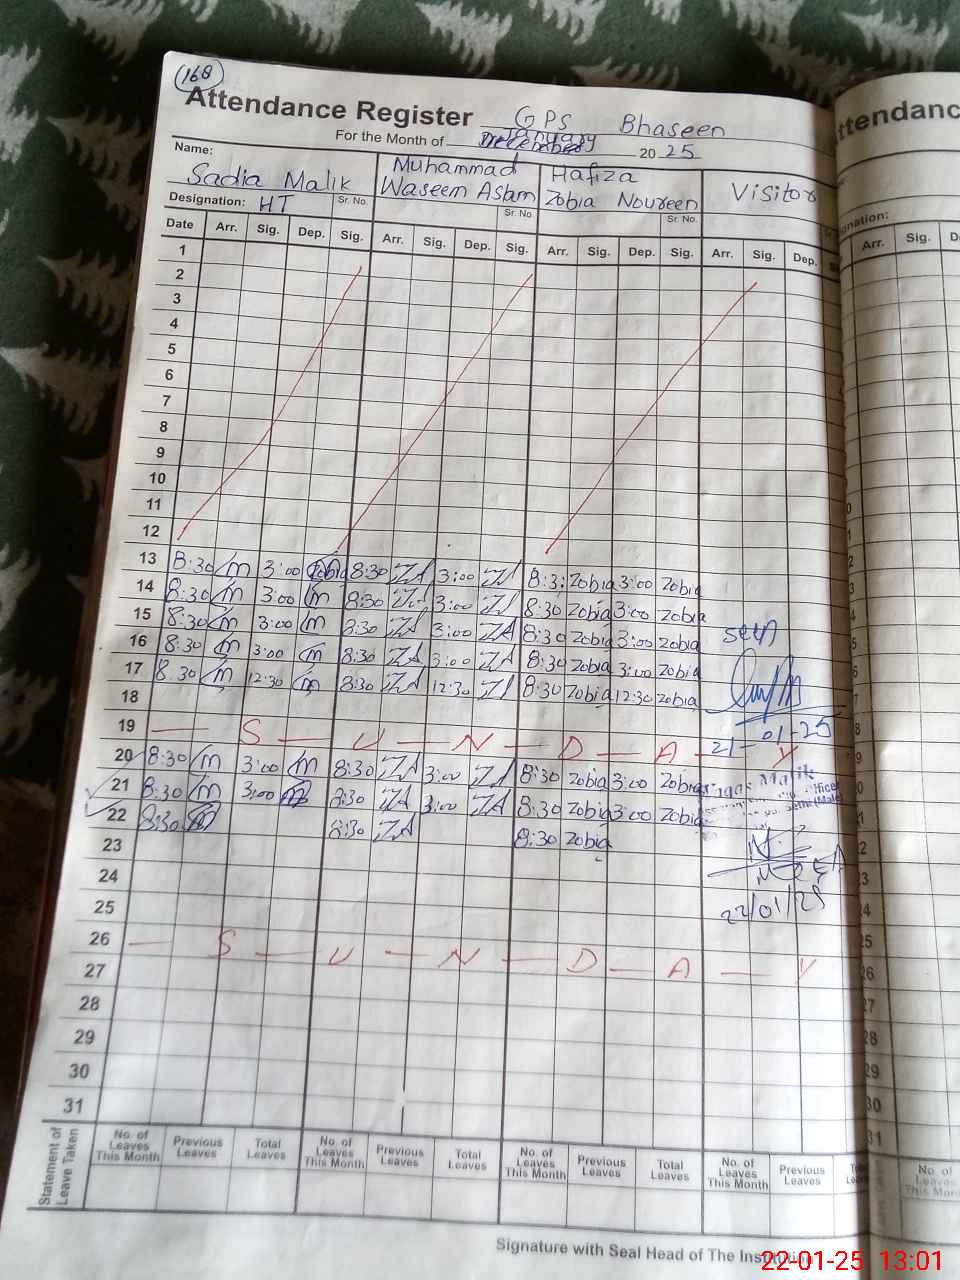 168
Attendance Register GPS Bhaseen
For the Month of January 2025
Name: Sadia Malik Muhammad Waseem Aslam Hafiza Zobia Noureen Visitor
Designation: HT Sr. No. Sr. No. Sr. No.
Date Arr. Sig. Dep. Sig. Arr. Sig. Dep. Sig. Arr. Sig. Dep. Sig. Arr. Sig. Dep.
1
2
3
4
5
6
7
8
9
10
11
12
13 8:30 m 3:00 8:30 ZA 3:00 ZA 8:3 Zobia 3:00 Zobia
14 8:30 m 3:00 m 8:30 ZA 3:00 ZA 8:30 Zobia 3:00 Zobia
15 8:30 m 3:00 m 8:30 ZA 3:00 ZA 8:30 Zobia 3:00 Zobia
16 8:30 m 3:00 m 8:30 ZA 3:00 ZA 8:30 Zobia 3:00 Zobia
17 8:30 m 12:30 m 8:30 ZA 12:30 ZA 8:30 Zobia 12:30 Zobia
18
seen
21-01-25
19 — S — U — N — D — A — Y
20 8:30 m 3:00 m 8:30 ZA 3:00 ZA 8:30 Zobia 3:00 Zobia
21 8:30 m 3:00 m 8:30 ZA 3:00 ZA 8:30 Zobia 3:00 Zobia
22 8:30 m 8:30 ZA 8:30 Zobia
Malik
Officer
(Male)
23
24
22/01/25
25
26 — S — U — N — D — A — Y
27
28
29
30
31
Statement of Leave Taken
No. of Leaves This Month Previous Leaves Total Leaves No. of Leaves This Month Previous Leaves Total Leaves No. of Leaves This Month Previous Leaves Total Leaves No. of Leaves This Month Previous Leaves
Signature with Seal Head of The
22-01-25 13:01